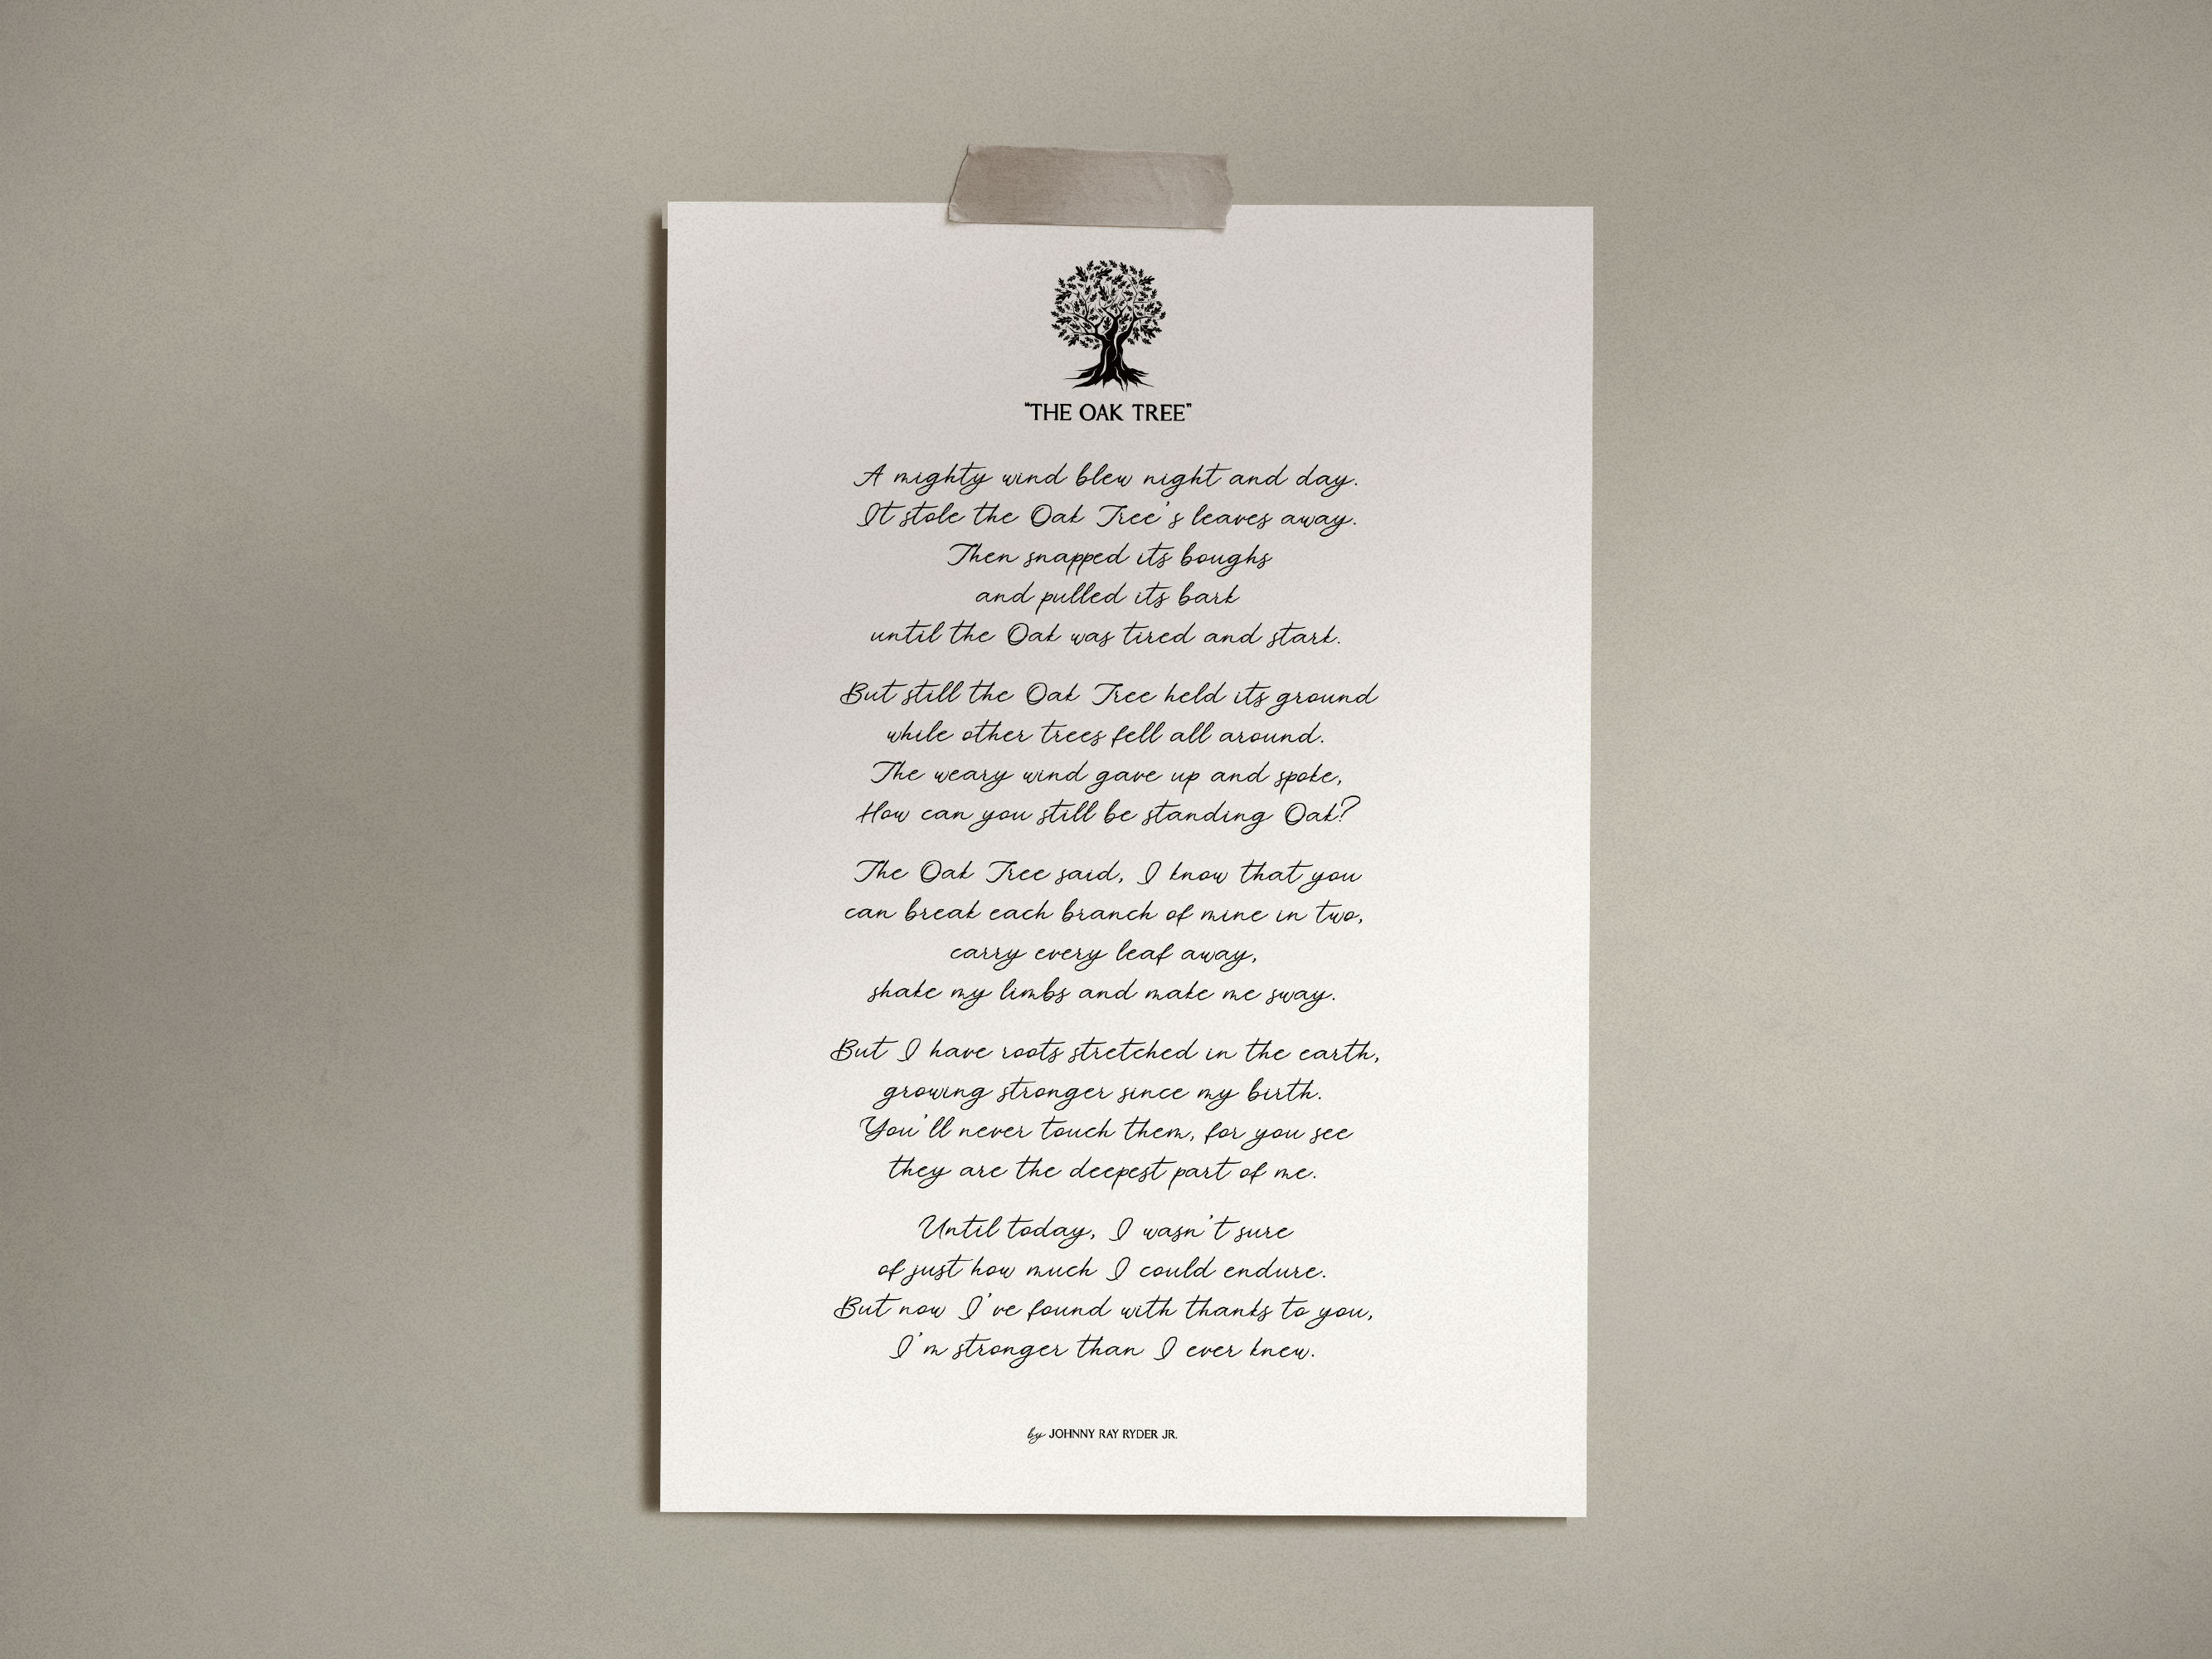 "THE OAK TREE"
A mighty wind blew night and day.
It stole the Oak Tree's leaves away.
Then snapped its boughs
and pulled its bark
until the Oak was tired and stark.
But still the Oak Tree held its ground
while other trees fell all around.
The weary wind gave up and spoke,
How can you still be standing Oak?
The Oak Tree said, I know that you
can break each branch of mine in two,
carry every leaf away,
shake my limbs and make me sway.
But I have roots stretched in the earth,
growing stronger since my birth.
You'll never touch them, for you see
they are the deepest part of me.
Until today, I wasn't sure
of just how much I could endure.
But now I've found with thanks to you,
I'm stronger than I ever knew.
by JOHNNY RAY RYDER JR.